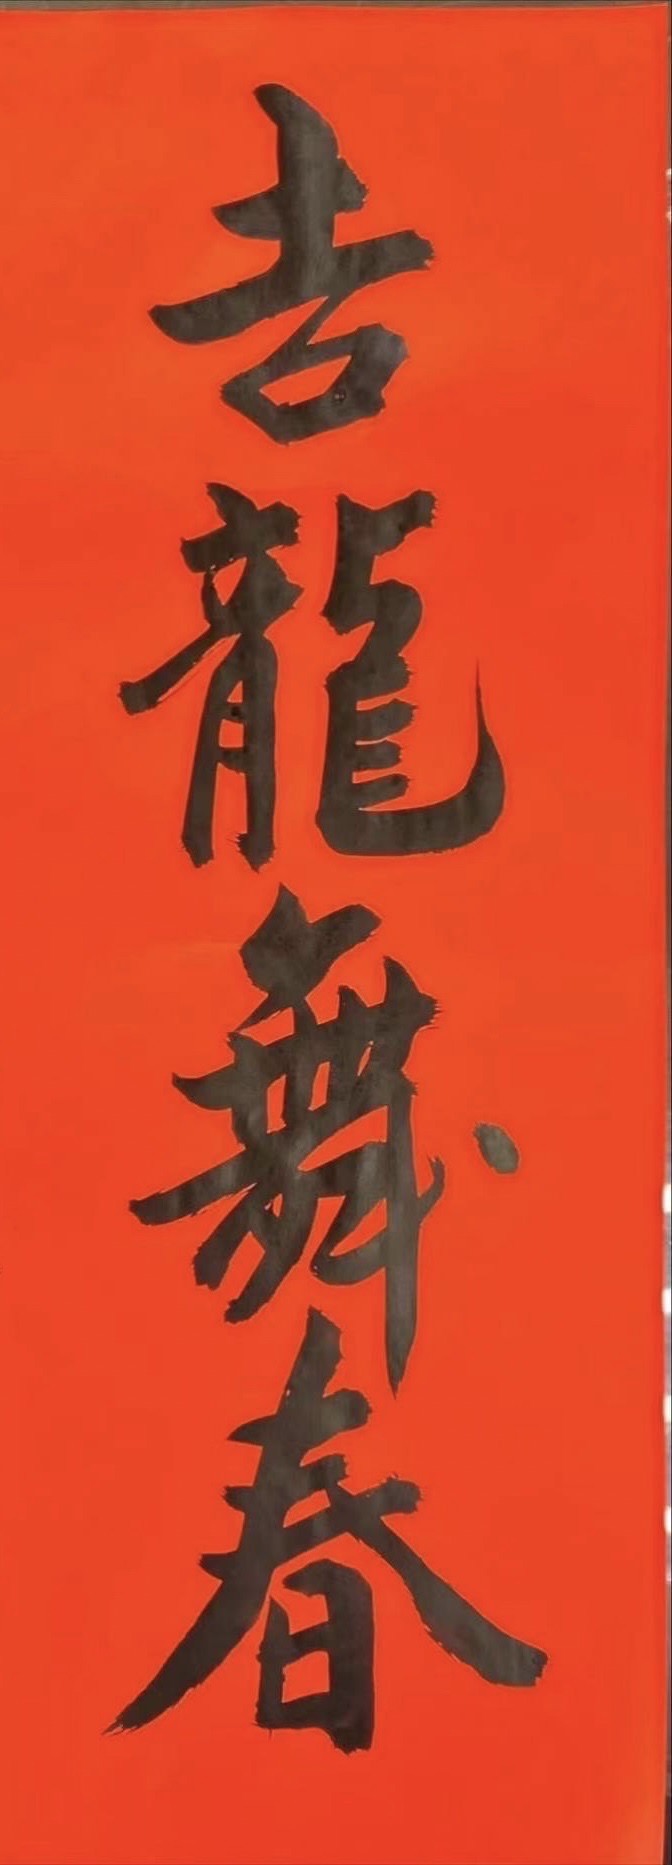 吉龍舞春